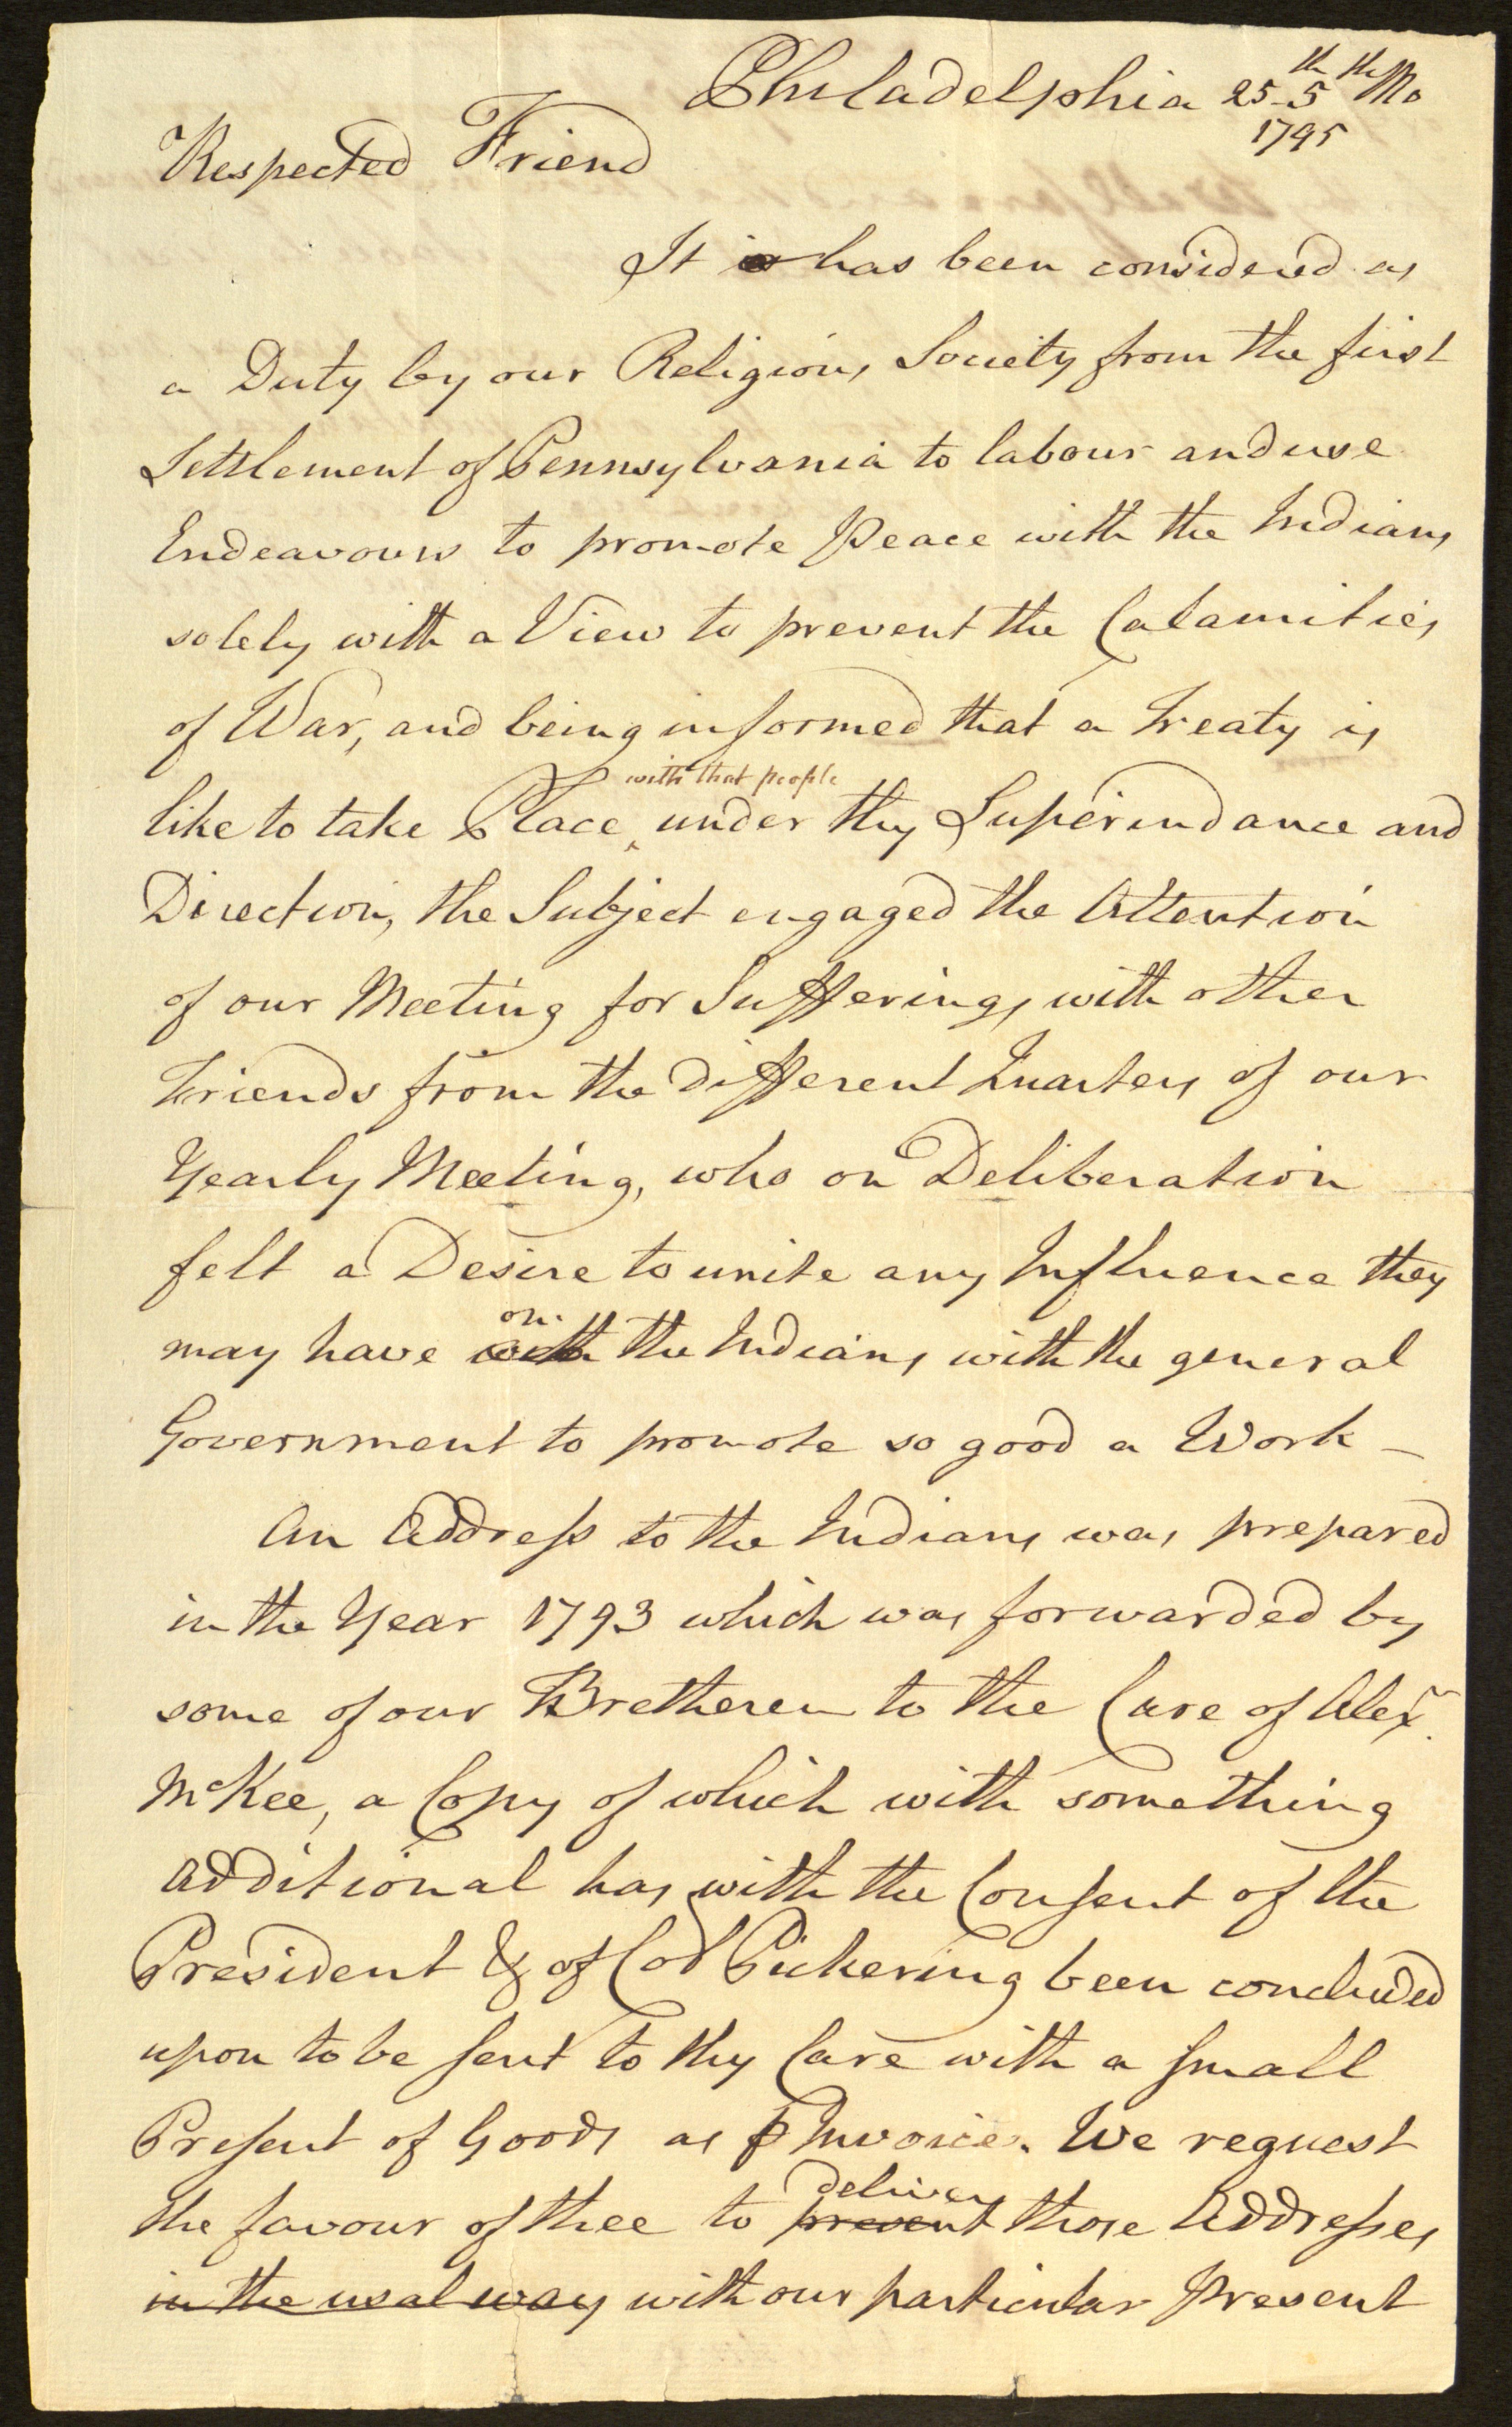 Philadelphia 25th 5th Mo
1795
Respected Friend
It is has been considered as
a Duty by our Religious Society from the first
Settlement of Pennsylvania to labour and use
Endeavours to promote Peace with the Indians
solely with a View to prevent the Calamities
of War, and being informed that a Treaty is
with that people
like to take Place ‸ under thy Superindance and
Direction, the Subject engaged the Attention
of our Meeting for Sufferings with other
Friends from the different Quarters of our
Yearly Meeting, who on Deliberation
felt a Desire to unite any Influence they
on
may have with the Indians with the general
Government to promote so good a Work –
An Address to the Indians was prepared
in the Year 1793 which was forwarded by
some of our Bretheren to the Care of Alexr.
McKee, a Copy of which with something
additional has with the Consent of the
President & of Col Pickering been concluded
upon to be sent to thy Care with a small
Present of Goods as ⅌ Invoice. We request
deliver
the favour of thee to present those Addresses
in the usal way with our particular Present